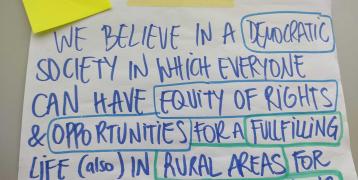 WE BELIEVE IN A DEMOCRATIC
SOCIETY IN WHICH EVERYONE
CAN HAVE EQUITY OF RIGHTS
& OPPORTUNITIES FOR A FULFILLING
LIFE (also) IN RURAL AREAS FOR